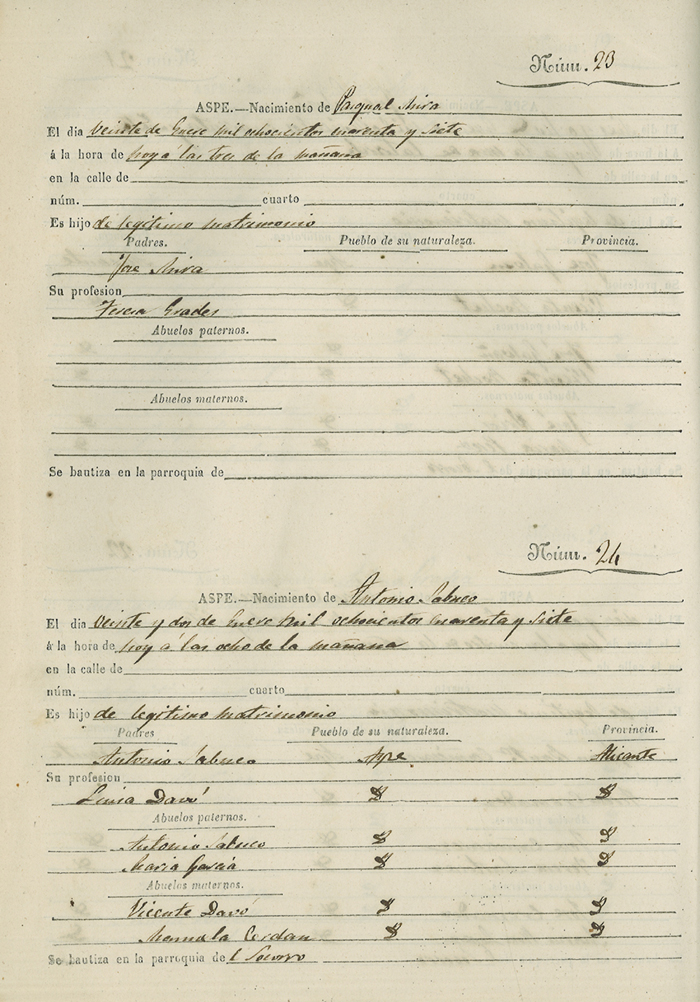 Núm. 23
ASPE.—Nacimiento de Pasqual Mira
El dia veinte de Enero Mil ochocientos cuarenta y siete
á la hora de hoy á las tres de la mañana
en la calle de
núm. cuarto
Es hijo de legitimo matrimonio
Padres. Pueblo de su naturaleza. Provincia.
Jose Mira
Su profesion
Teresa Grades
Abuelos paternos.
Abuelos maternos.
Se bautiza en la parroquia de
Núm. 24
ASPE.—Nacimiento de Antonio Sabuco
El dia veinte y dos de Enero Mil ochocientos cuarenta y siete
á la hora de hoy á las ocho de la mañana
en la calle de
núm. cuarto
Es hijo de legitimo matrimonio
Padres Pueblo de su naturaleza. Provincia.
Antonio Sabuco Aspe Alicante
Su profesion
Davó
Abuelos paternos.
Antonio Sabuco
Maria Garcia
Abuelos maternos.
Vicente Davó
Manuela Cerdan
Se bautiza en la parroquia de l Socorro